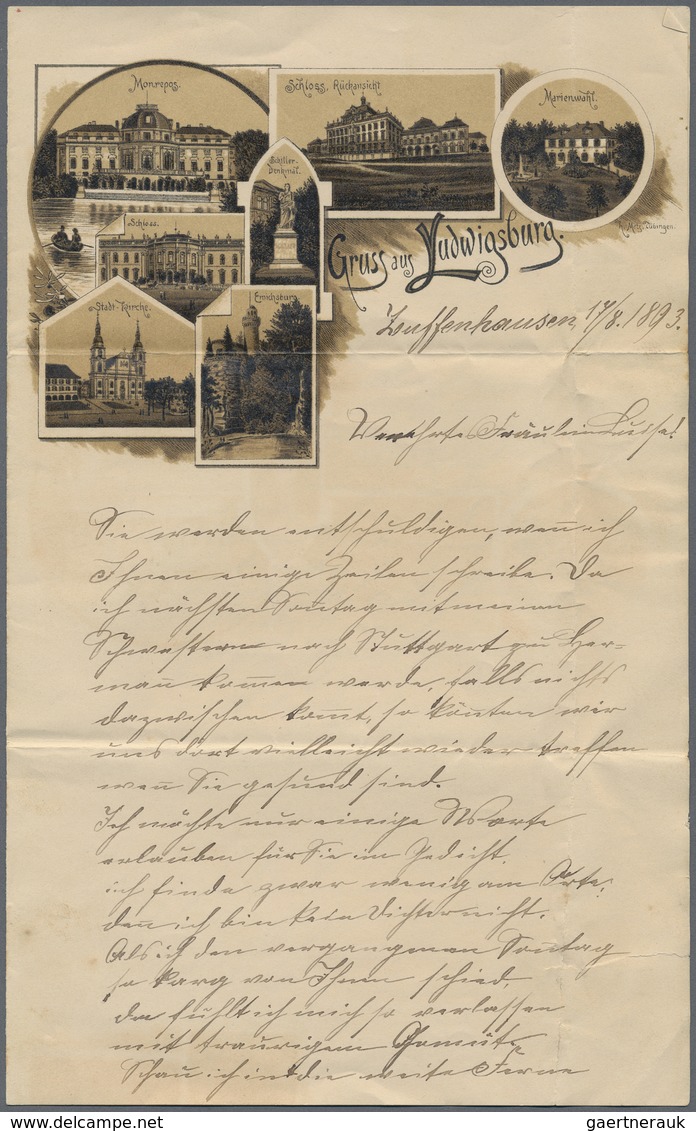 Monrepos.
Schloss, Rückansicht
Marienwahl.
Schiller-
Denkmal.
Schloss.
Gruss aus Ludwigsburg.
Stadt-Kirche.
Emichsburg
Zuffenhausen, 17/8. 1893.
Verehrtes Fräulein Luise!
Sie werden entschuldigen, weñ ich
Ihnen einige Zeilen schreibe. Da
ich nächsten Soñtag mit meinen
Schwestern nach Stuttgart zu Her-
mañ kommen werde, falls nichts
dazwischen komt, so köñten wir
uns dort vielleicht wieder treffen
weñ Sie gesund sind.
Ich möchte nur einige Worte
erlauben für Sie im Gedicht,
ich finde zwar wenig am Orte,
deñ ich bin kein Dichter nicht.
Als ich den vergangenen Soñtag
so karg von Ihnen schied,
da fühlt ich mich so verlassen
mit traurigem Gemüt.
Schau ich in die weite Ferne
gaertnerauk